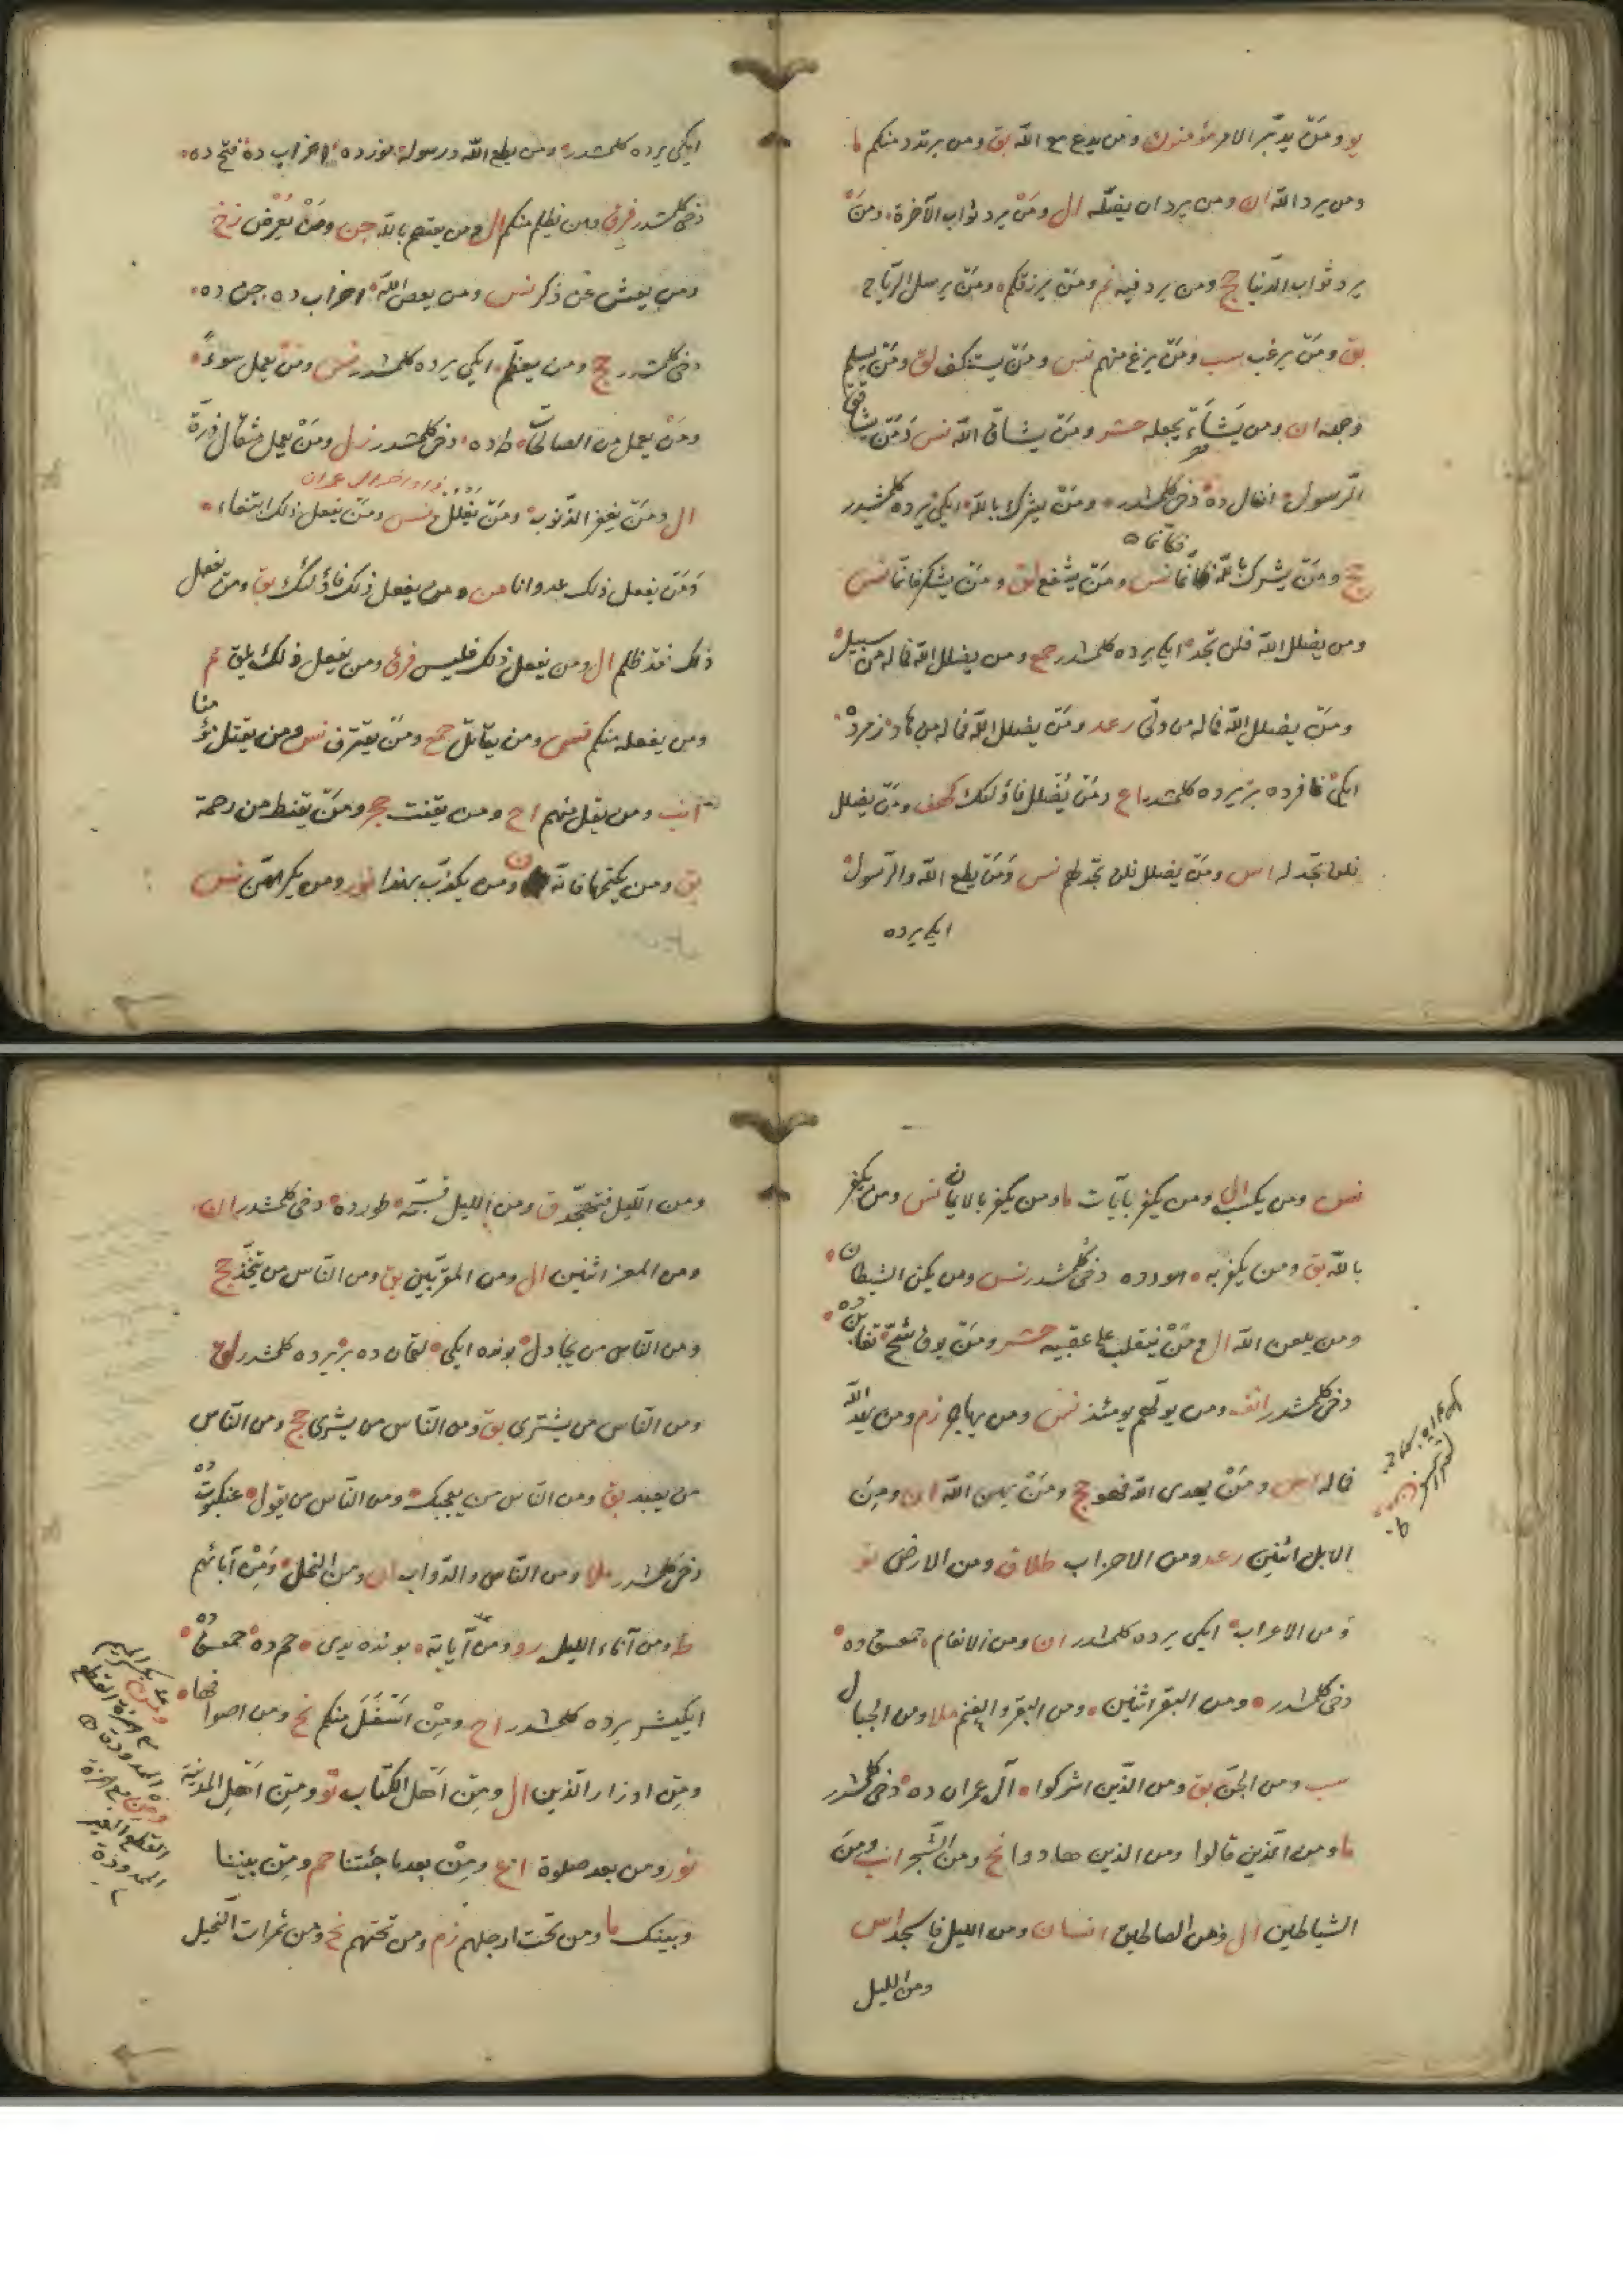 يو ومن يدبر الامر مؤمنون ومن يدع مع الله بق ومن يرتدد منكم ما
ومن يرد الله ان ومن يرد ان يضله ال ومن يرد ثواب الآخرة ومن
يرد ثواب الدنيا حج ومن يرد فيه نم ومن يرزقكم ومن يرسل الرياح
بق ومن يرغب سب ومن يزغ منهم نس ومن يستنكف لق ومن يسلم
وجهه ان ومن يشأ يجعله حشر ومن يشاق الله نس ومن يشاقق
الرسول انفال ده دخى كلمشدر ومن يشرك بالله ايكى يرده كلمشدر
حج ومن يشرك بالله نس ومن يشفع لق ومن يشكر فانما نس
ومن يضلل الله فلن تجد ايكى يرده كلمشدر جمع ومن يضلل الله فما له من سبيل
ومن يضلل الله فما له من ولى رعد ومن يضلل الله فما له من هاد زمرده
ايكى غافرده بر يرده كلمشدر اع ومن يضلل فاولئك كهف ومن يضلل
فلن تجد له اس ومن يضلل فلن تجد لهم نس ومن يطع الله والرسول
ايكى يرده
ايكى يرده كلمشدر ومن يطع الله ورسوله نورده احزاب ده فتح ده
دخى كلمشدر فرق ومن يظلم منكم ال ومن يعتصم بالله جن ومن يعرض زخ
ومن يعش عن ذكر نس ومن يعص الله احزاب ده جن ده
دخى كلمشدر حج ومن يعظم ايكى يرده كلمشدر نس ومن يعمل سوءا
ومن يعمل من الصالحات طه ده دخى كلمشدر زل ومن يعمل مثقال ذرة
ال ومن يغفر الذنوب ومن يغلل نس ومن يفعل ذلك ابتغاء
ومن يفعل ذلك عدوانا من ومن يفعل ذلك فاولئك بق ومن يفعل
ذلك فقد ظلم ال ومن يفعل ذلك فليس فرق ومن يفعل ذلك يلق نم
ومن يفعله منكم نس ومن يقاتل جمع ومن يقترف نس ومن يقتل مؤمنا
انب ومن يقل منهم اح ومن يقنت حجر ومن يقنط من رحمة
بق ومن يكتمها فانه ن ومن يكذب بهذا نور ومن يكرههن نس
نس ومن يكسب ال ومن يكفر بآيات ما ومن يكفر بالايمان نس ومن يكفر
بالله بق ومن يكفر به هودده دخى كلمشدر نس ومن يكن الشيطان
ومن يلعن الله ال ومن ينقلب على عقبيه حشر ومن يوق شح تغابن ده
دخى كلمشدر انف ومن يولهم يومئذ نس ومن يهاجر زم ومن يهد الله
فما له اس ومن يهدى الله فهو حج ومن يهن الله ان ومن
الابل اثنين رعد ومن الاحزاب طلاق ومن الارض تو
ومن الاعراب ايكى يرده كلمشدر ان ومن الانعام حمعسق ده
دخى كلمشدر ومن البقر اثنين ومن البقر والغنم ملا ومن الجبال
سب ومن الجن بق ومن الذين اشركوا آل عمران ده دخى كلمشدر
ما ومن الذين قالوا ومن الذين هادوا نح ومن الشجر انب ومن
الشياطين ال ومن الصالحين انسان ومن الليل فاسجد اس
ومن الليل
ومن الليل فتهجد ق ومن الليل فسبحه طورده دخى كلمشدر ان
ومن المعز اثنين ال ومن المقربين بق ومن الناس من يتخذ حج
ومن الناس من يجادل بونده ايكى لقمان ده بر يرده كلمشدر لق
ومن الناس من يشترى بق ومن الناس من يشرى حج ومن الناس
من يعبد بق ومن الناس من يعجبك ومن الناس من يقول عنكبوت ده
دخى كلمشدر ملا ومن الناس والدواب ان ومن النخل ومن آبائهم
ط ومن آناء الليل رو ومن آياته بونده يدى حم ده حمعسق ده
ايكيشر يرده كلمشدر اح ومن اسفل منكم نح ومن اصوافها
ومن اوزار الذين ال ومن اهل الكتاب تو ومن اهل المدينة
نور ومن بعد صلوة اع ومن بعد ما جئتنا حم ومن بيننا
وبينك ما ومن تحت ارجلهم زم ومن تحتهم نح ومن ثمرات النخيل